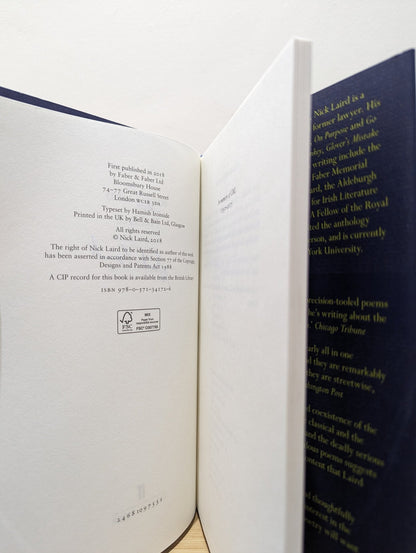 First published in 2018
by Faber & Faber Ltd
Bloomsbury House
74–77 Great Russell Street
London WC1B 3DA
Typeset by Hamish Ironside
Printed in the UK by Bell & Bain Ltd, Glasgow
All rights reserved
© Nick Laird, 2018
The right of Nick Laird to be identified as author of this work
has been asserted in accordance with Section 77 of the Copyright,
Designs and Patents Act 1988
A CIP record for this book is available from the British Library
ISBN 978–0–571–34172–6
FSC
MIX
Paper from
responsible sources
2 4 6 8 10 9 7 5 3 1
Nick Laird is a
former lawyer. His
On Purpose and Go
Glover's Mistake
writing include the
Faber Memorial
ard, the Aldeburgh
for Irish Literature
A Fellow of the Royal
ted the anthology
erson, and is currently
York University.
precision-tooled poems
he's writing about the
.' Chicago Tribune
arly all in one
d they are remarkably
they are streetwise,
hington Post
d coexistence of the
classical and the
and the deadly serious
ious poems suggests
ontent that Laird
d thoughtfully
nterest in the
oetry will want